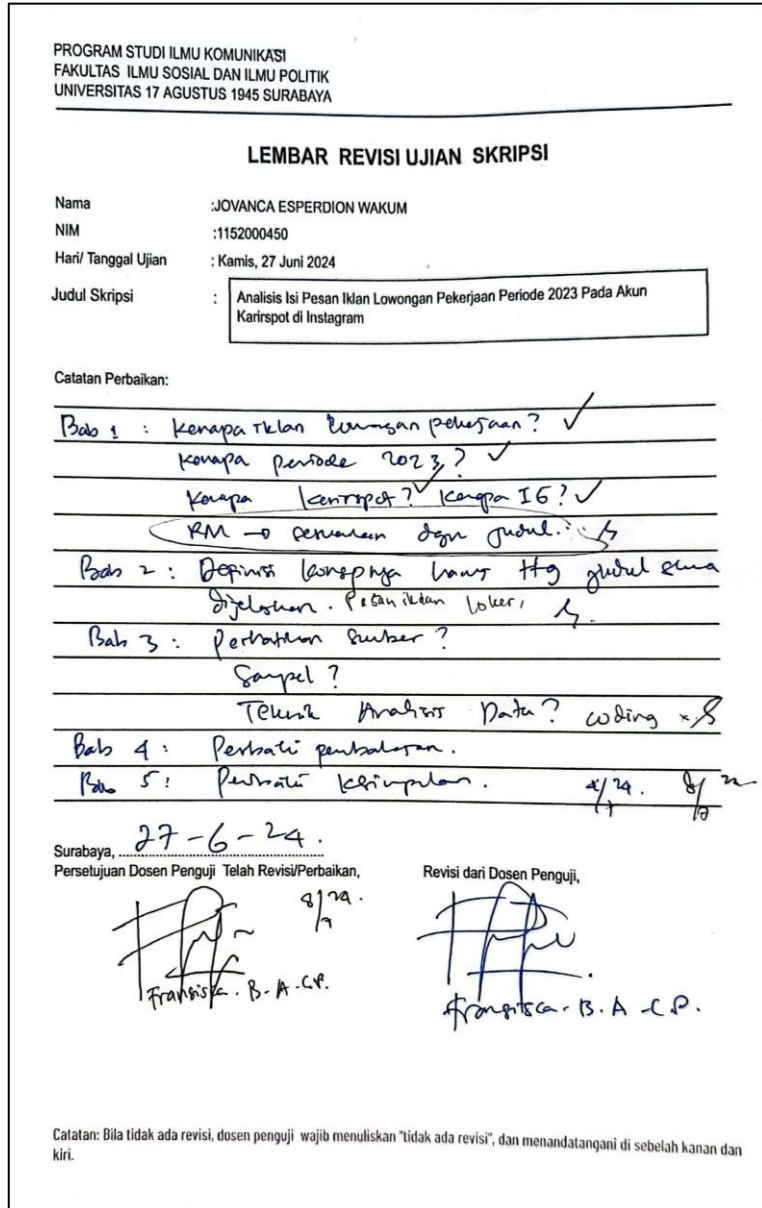 PROGRAM STUDI ILMU KOMUNIKASI
FAKULTAS ILMU SOSIAL DAN ILMU POLITIK
UNIVERSITAS 17 AGUSTUS 1945 SURABAYA
LEMBAR REVISI UJIAN SKRIPSI
Nama :JOVANCA ESPERDION WAKUM
NIM :1152000450
Hari/ Tanggal Ujian : Kamis, 27 Juni 2024
Judul Skripsi : Analisis Isi Pesan Iklan Lowongan Pekerjaan Periode 2023 Pada Akun
Karirspot di Instagram
Catatan Perbaikan:
Bab 1 : Kenapa iklan lowongan pekerjaan? ✓
Kenapa periode 2023? ✓
Kenapa Karirspot? ✓ Kenapa IG? ✓
RM → sesuaikan dgn judul.
Bab 2 : Definisi konsepnya harus ttg judul semua
dijelaskan. Pesan iklan loker,
Bab 3 : Perhatikan sumber?
Sampel?
Teknik Analisis Data? coding
Bab 4 : Perbaiki pembahasan.
Bab 5 : Perbaiki kesimpulan.
Surabaya, 27-6-24.
Persetujuan Dosen Penguji Telah Revisi/Perbaikan, Revisi dari Dosen Penguji,
Fransiska. B. A. C.P. Fransisca. B. A. C.P.
Catatan: Bila tidak ada revisi, dosen penguji wajib menuliskan "tidak ada revisi", dan menandatangani di sebelah kanan dan
kiri.